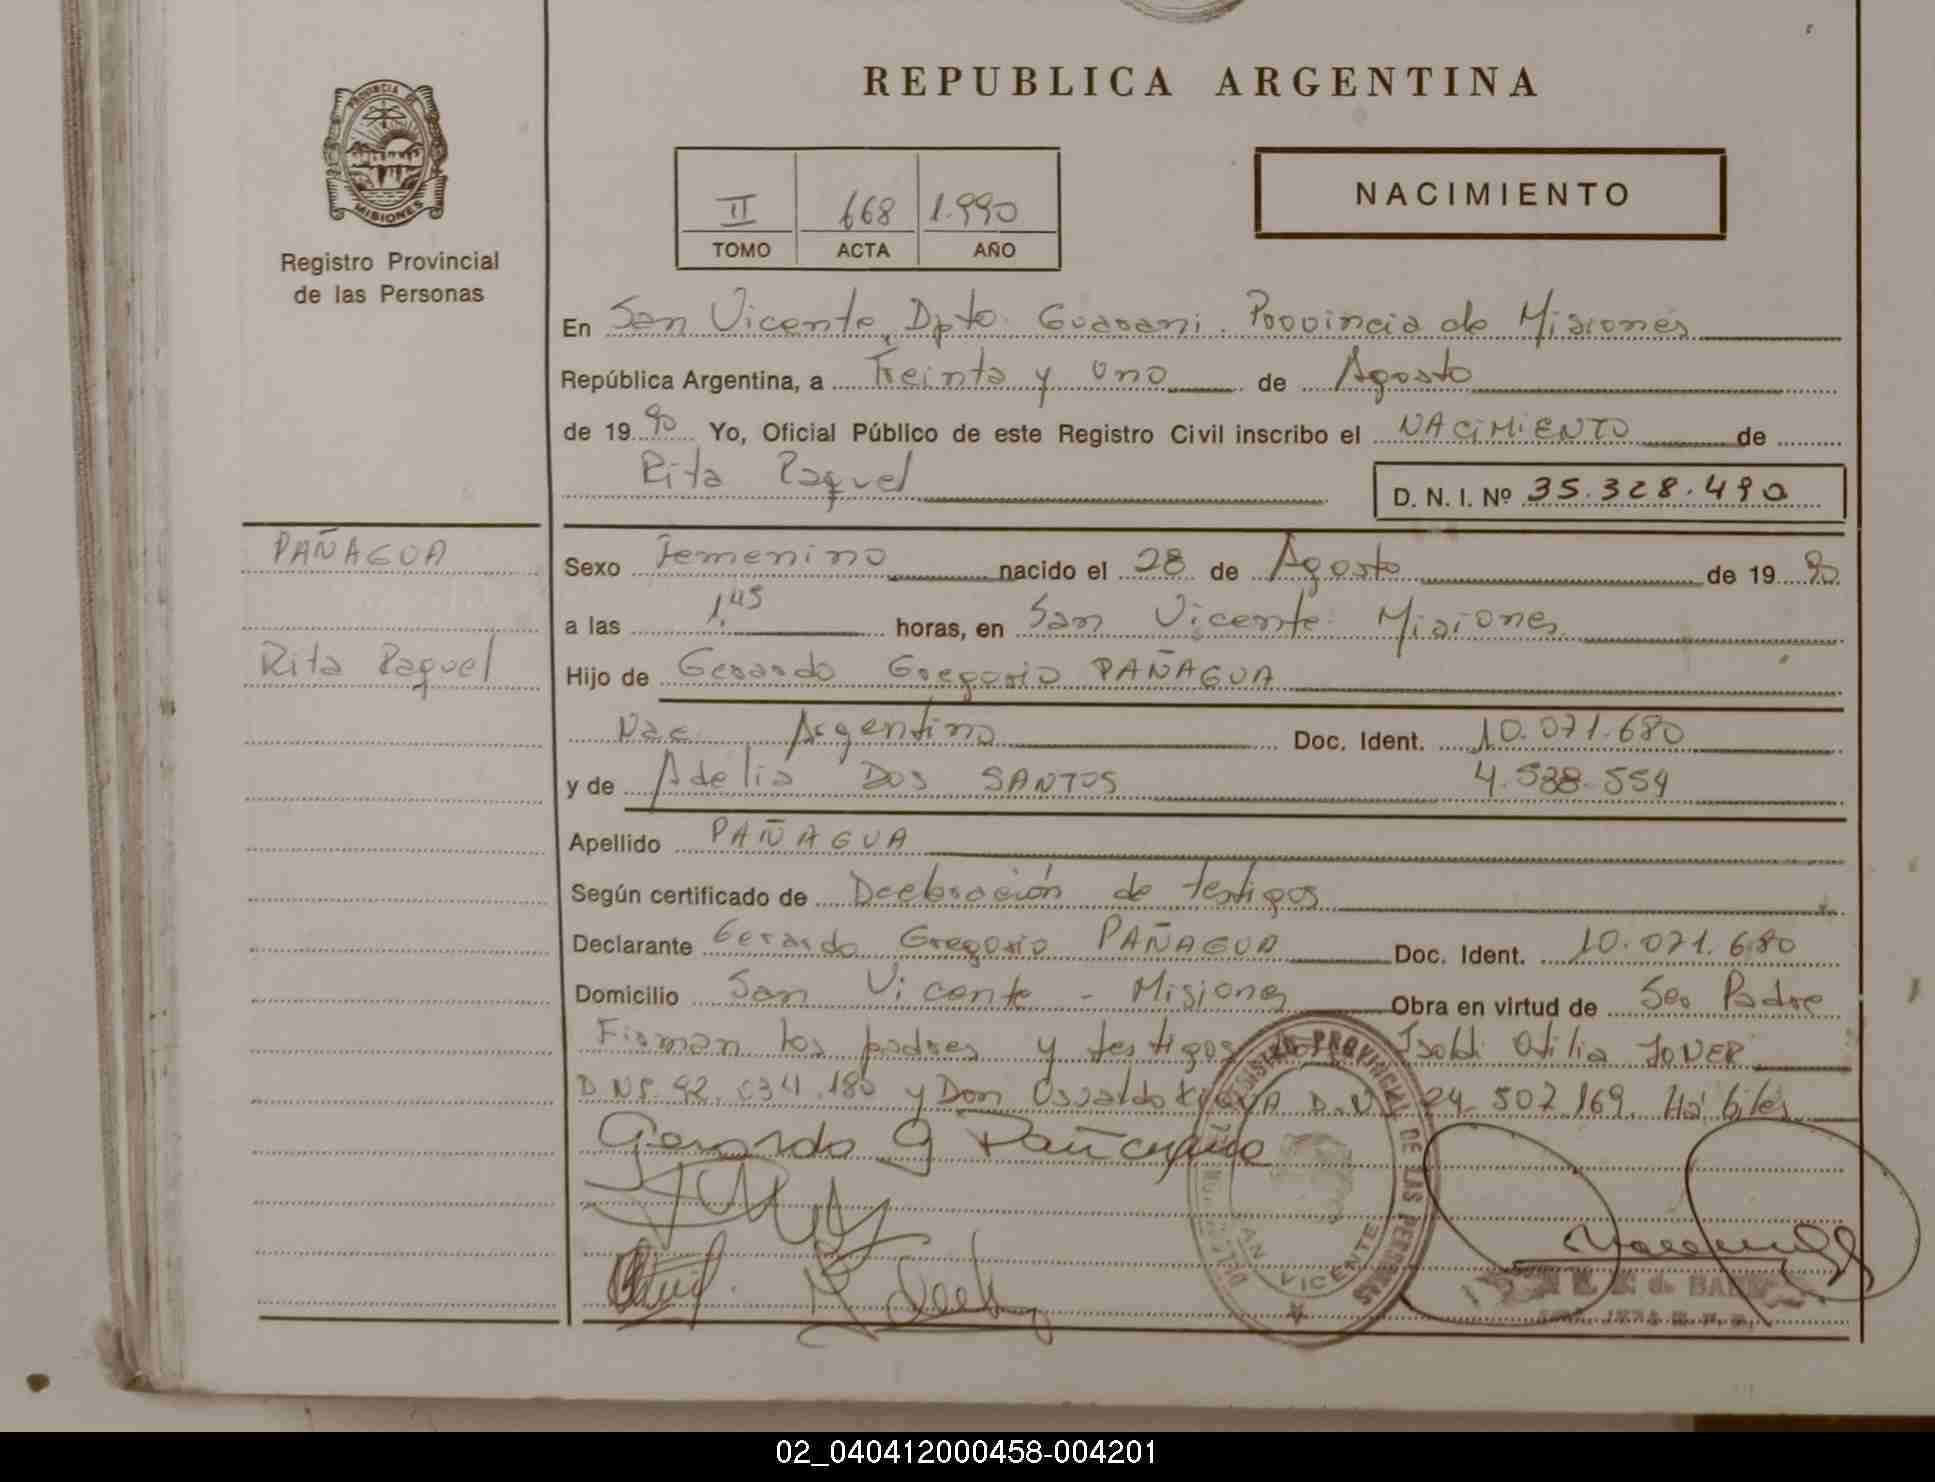 REPUBLICA ARGENTINA
PROVINCIA DE
MISIONES
Registro Provincial
de las Personas
II 668 1.990
TOMO ACTA AÑO
NACIMIENTO
En San Vicente, Dpto. Guarani. Provincia de Misiones
República Argentina, a Treinta y Uno de Agosto
de 19 90 Yo, Oficial Público de este Registro Civil inscribo el NACIMIENTO de
Rita Raquel D. N. I. Nº 35.328.490
PAÑAGUA
Rita Raquel
Sexo Femenino nacido el 28 de Agosto de 19 90
a las 1,45 horas, en San Vicente. Misiones
Hijo de Gerardo Gregorio PAÑAGUA
Nac. Argentino Doc. Ident. 10.071.680
y de Adelia DOS SANTOS 4.538.554
Apellido PAÑAGUA
Según certificado de Declaración de testigos
Declarante Gerardo Gregorio PAÑAGUA Doc. Ident. 10.071.680
Domicilio San Vicente - Misiones Obra en virtud de Ser Padre
Firman los padres y testigos Isoldi Otilia
92.034.180 y Don Osvaldo 24.507.169. Hábiles
Gerardo G Pañagua
REGISTRO PROVINCIAL DE LAS PERSONAS
SAN VICENTE
02_040412000458-004201